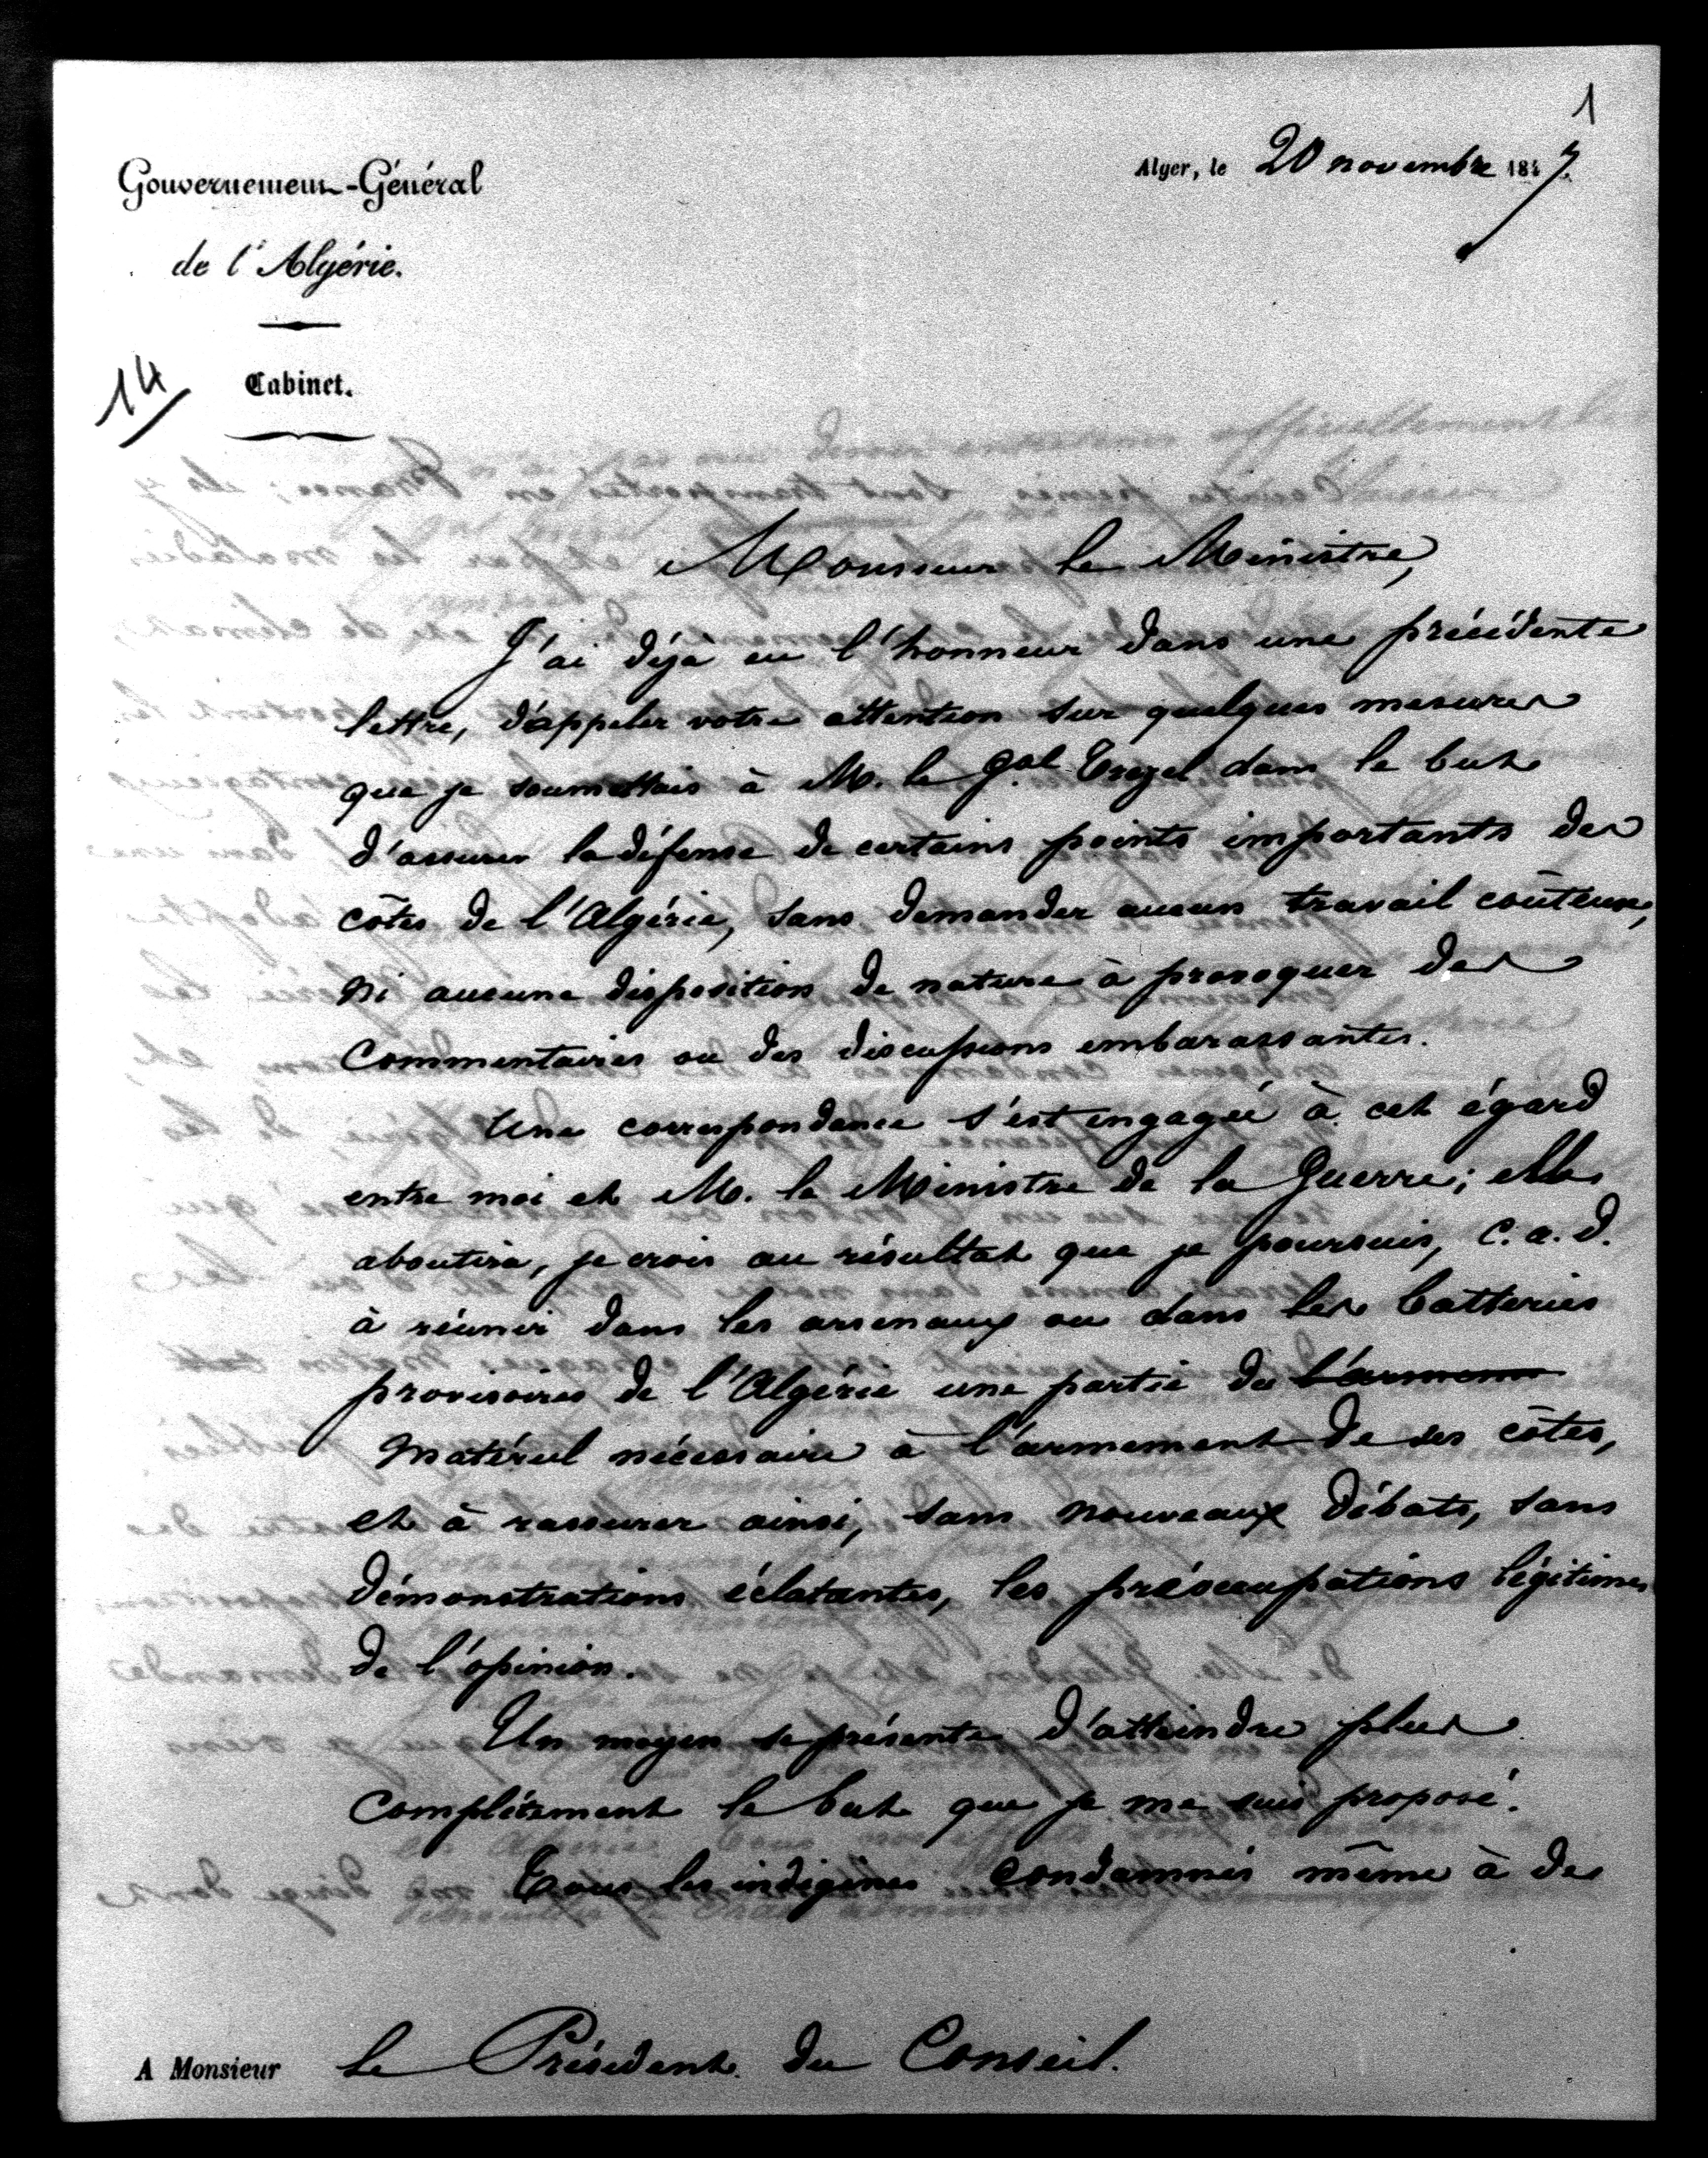 1
Gouvernement-Général
Alger, le 20 novembre 1847
de l'Algérie.
14
Cabinet.
Monsieur le Ministre,
J'ai déjà eu l'honneur dans une précédente
lettre, d'appeler votre attention sur quelques mesures
que je soumettais à M. le Gal Trézel dans le but
d'assurer la défense de certains points importants des
côtes de l'Algérie, sans demander aucun travail coûteux,
ni aucune disposition de nature à provoquer des
Commentaires ou des discussions embarassantes.
Une correspondance s'est engagée à cet égard
entre moi et M. le Ministre de la Guerre; elle
aboutira, je crois au résultat que je poursuis, c.a.d.
à réunir dans les arsenaux ou dans les batteries
provisoires de l'Algérie une partie du l'armement
matériel nécessaire à l'armement de ses côtes,
et à rassurer ainsi, sans nouveaux débats, sans
démonstrations éclatantes, les préoccupations légitimes
de l'opinion.
Un moyen se présente d'atteindre plus
complétement le but que je me suis proposé.
Tous les indigènes condamnés même à des
A Monsieur le Président du Conseil.